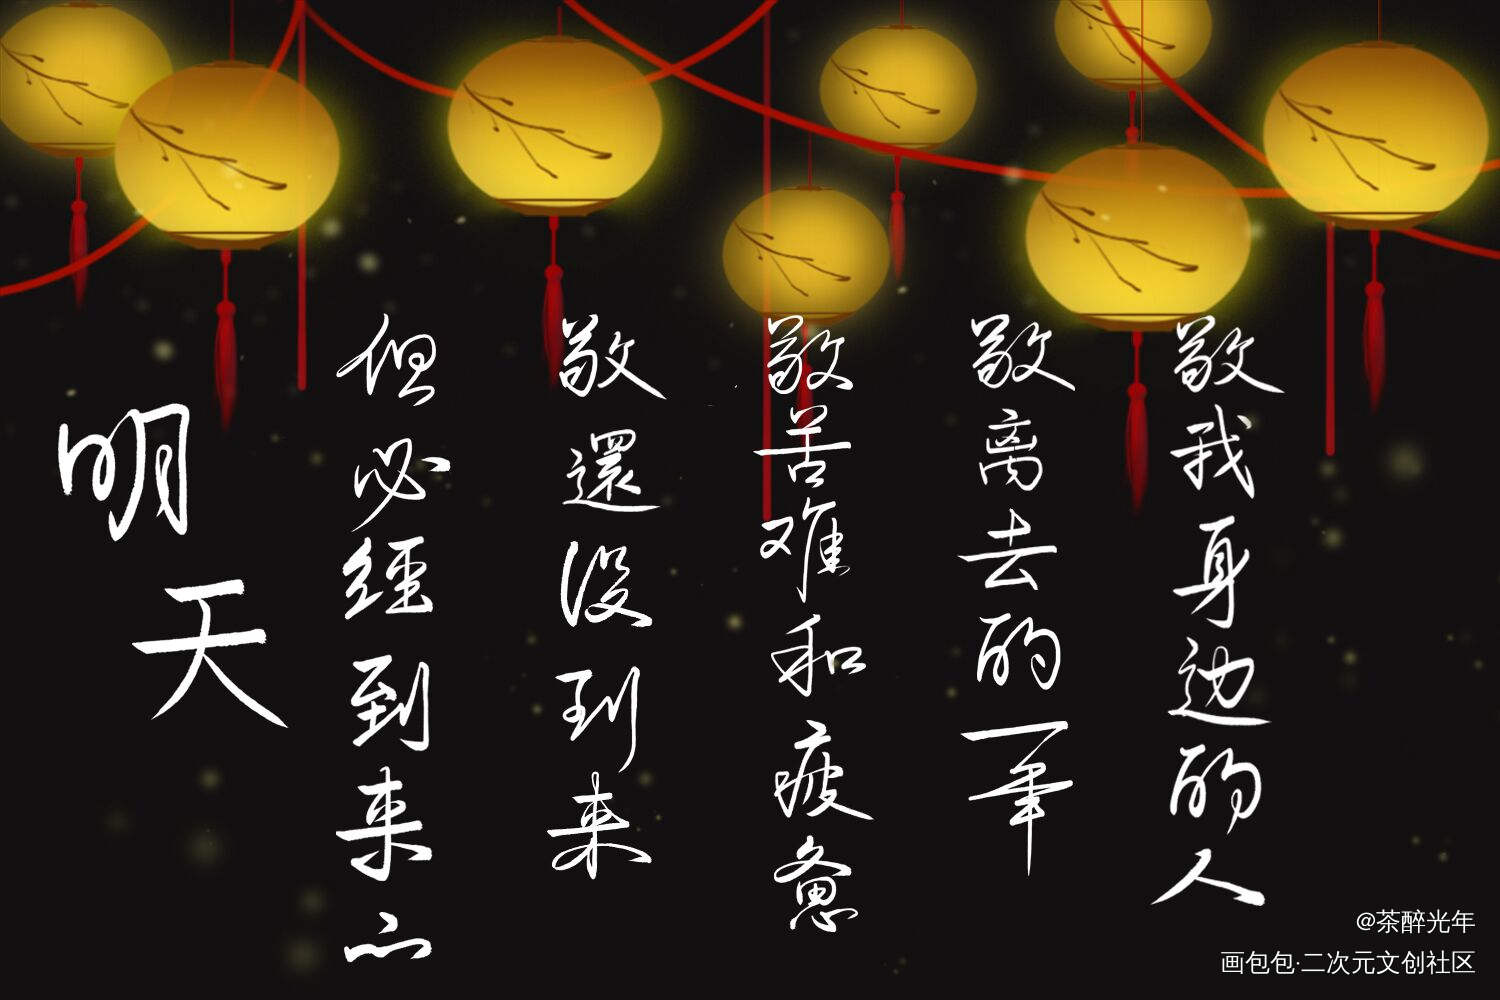 敬我身边的人
敬离去的一年
敬苦难和疲惫
敬還没到来
但必經到来
明天
@茶醉光年
画包包·二次元文创社区